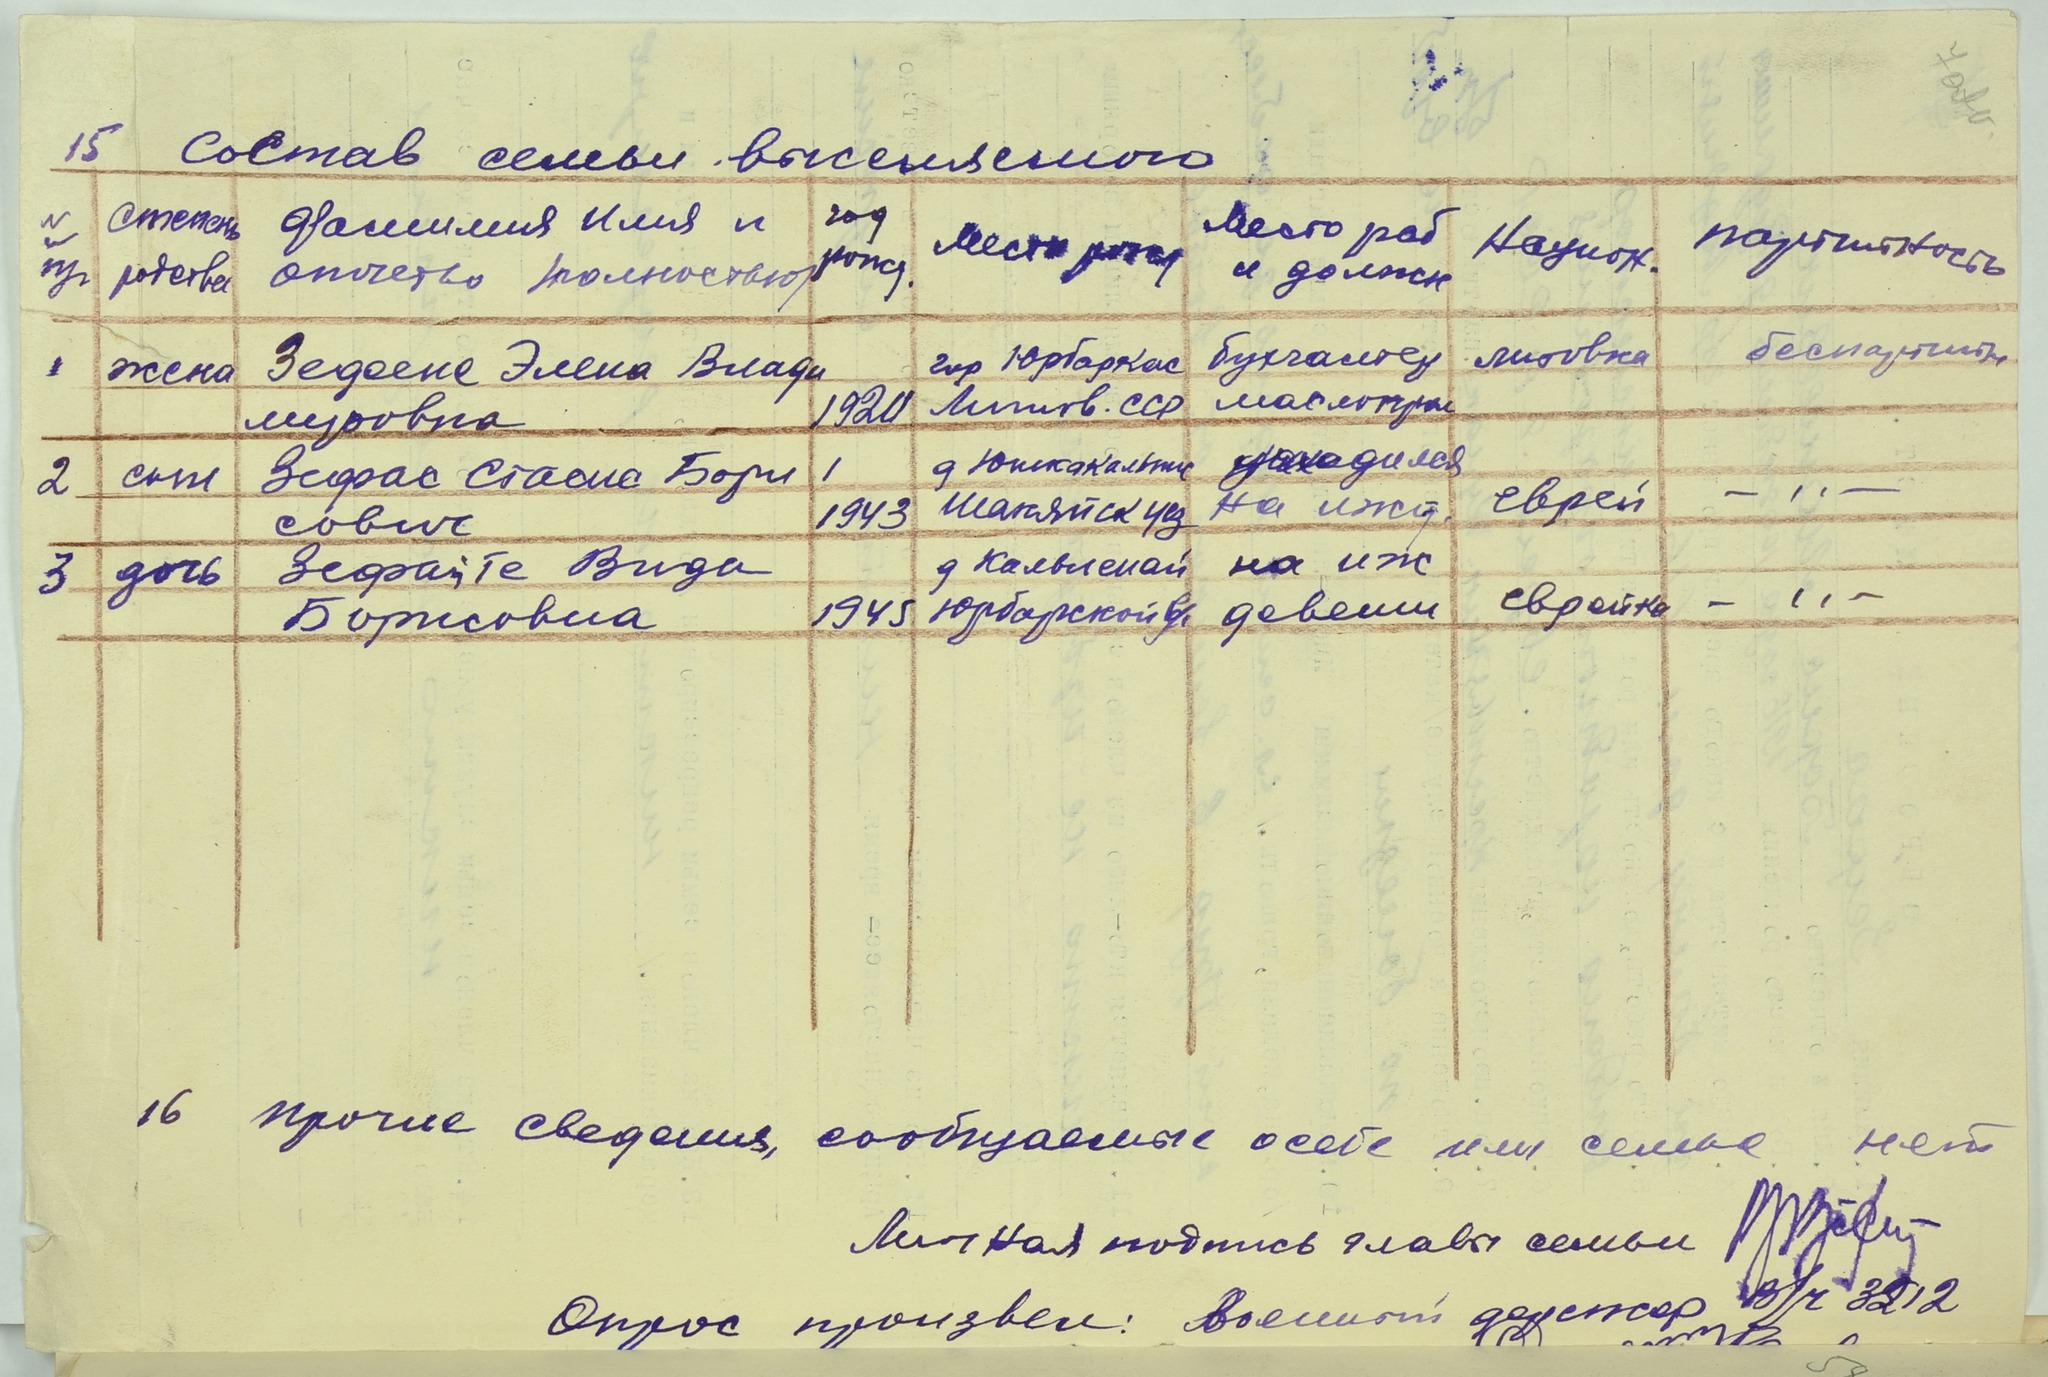 15 Состав семьи выселяемого
№ Степень Фамилия Имя и год Место рожд Место раб Национ. партийность
п/п родства отчество полностью рожд. и должн
1 жена Зефене Элена Влади гор Юрбаркас бухгалтер литовка беспартийн
мировна 1920 Литов. ССР маслопром
2 сын Зефас Стасис Бори д находился
сович 1943 Шакяйск уез на ижд. еврей — ,, —
3 дочь Зефайте Вида д на иж
Борисовна 1945 Юрбарской вол девении еврейка — ,, —
16 Прочие сведения, сообщаемые о себе или семье нет
Личная подпись главы семьи
Опрос произвел: Военный дознаватель в/ч 3212